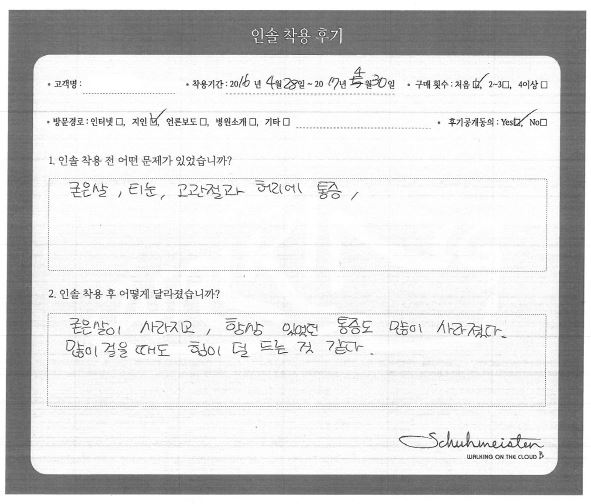 인솔 착용 후기
• 고객명 :
• 착용기간 : 2016 년 4월 28일 ~ 2017년 4월 30일
• 구매 횟수 : 처음 ☑, 2~3□, 4이상 □
• 방문경로 : 인터넷 □, 지인 ☑, 언론보도 □, 병원소개 □, 기타 □
• 후기공개동의 : Yes☑, No□
1. 인솔 착용 전 어떤 문제가 있었습니까?
굳은살, 티눈, 고관절과 허리에 통증,
2. 인솔 착용 후 어떻게 달라졌습니까?
굳은살이 사라지고, 항상 있었던 통증도 많이 사라졌다.
많이 걸을 때도 힘이 덜 드는 것 같다.
Schuhmeister
WALKING ON THE CLOUD B